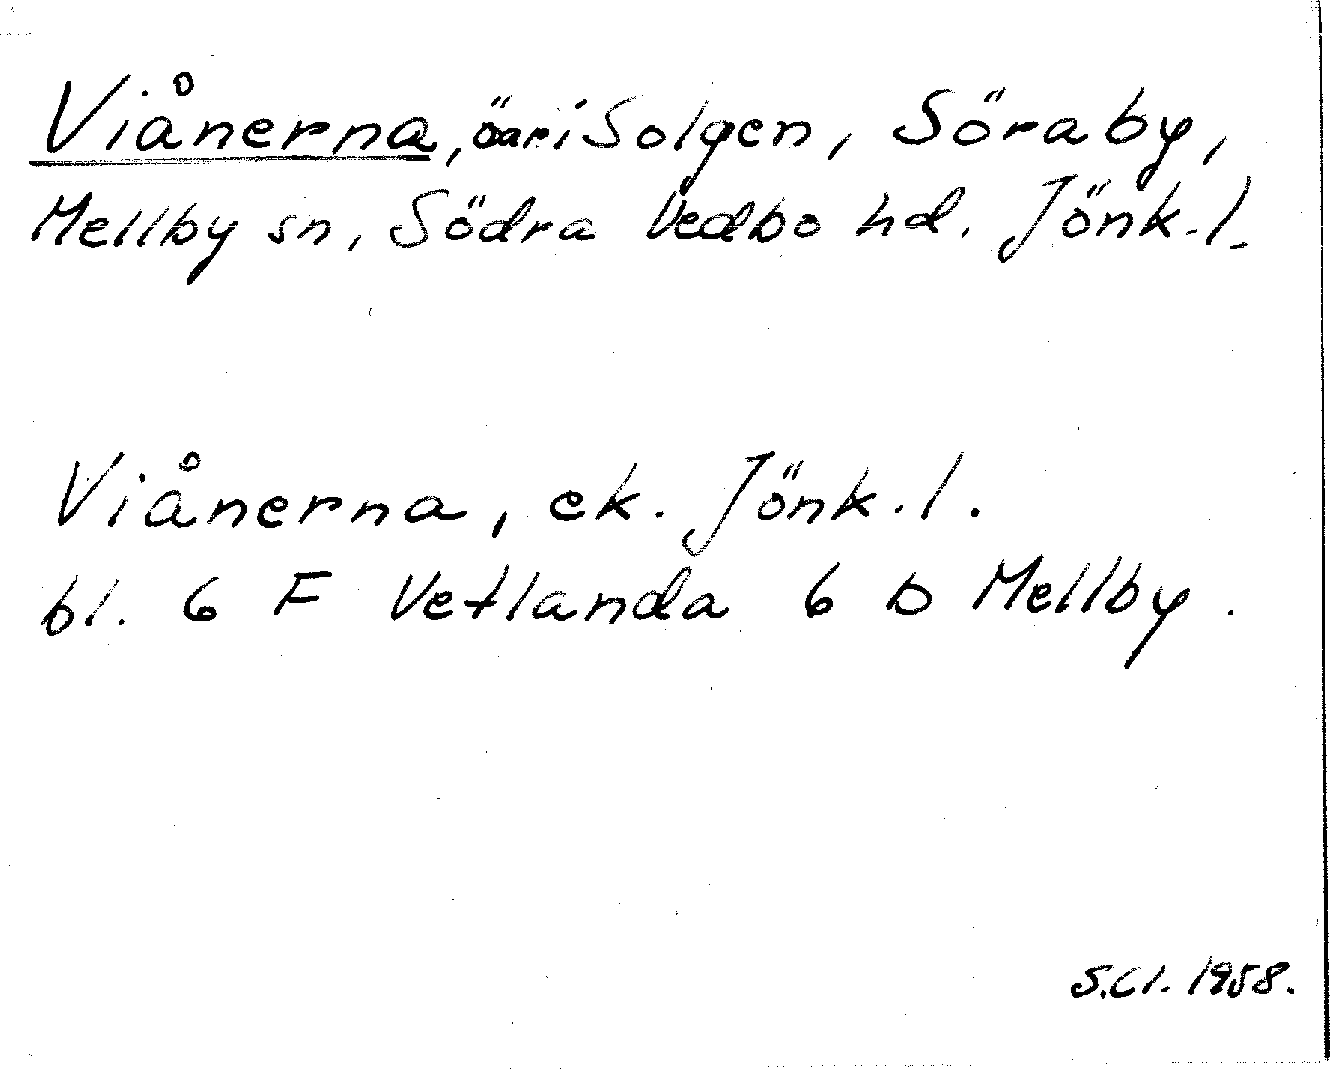 Viånerna, öar i Solgen, Söraby,
Mellby sn, Södra Vedbo hd. Jönk.l.
Viånerna, ek. Jönk.l.
bl. 6 F Vetlanda 6 b Mellby.
S.Cl. 1958.